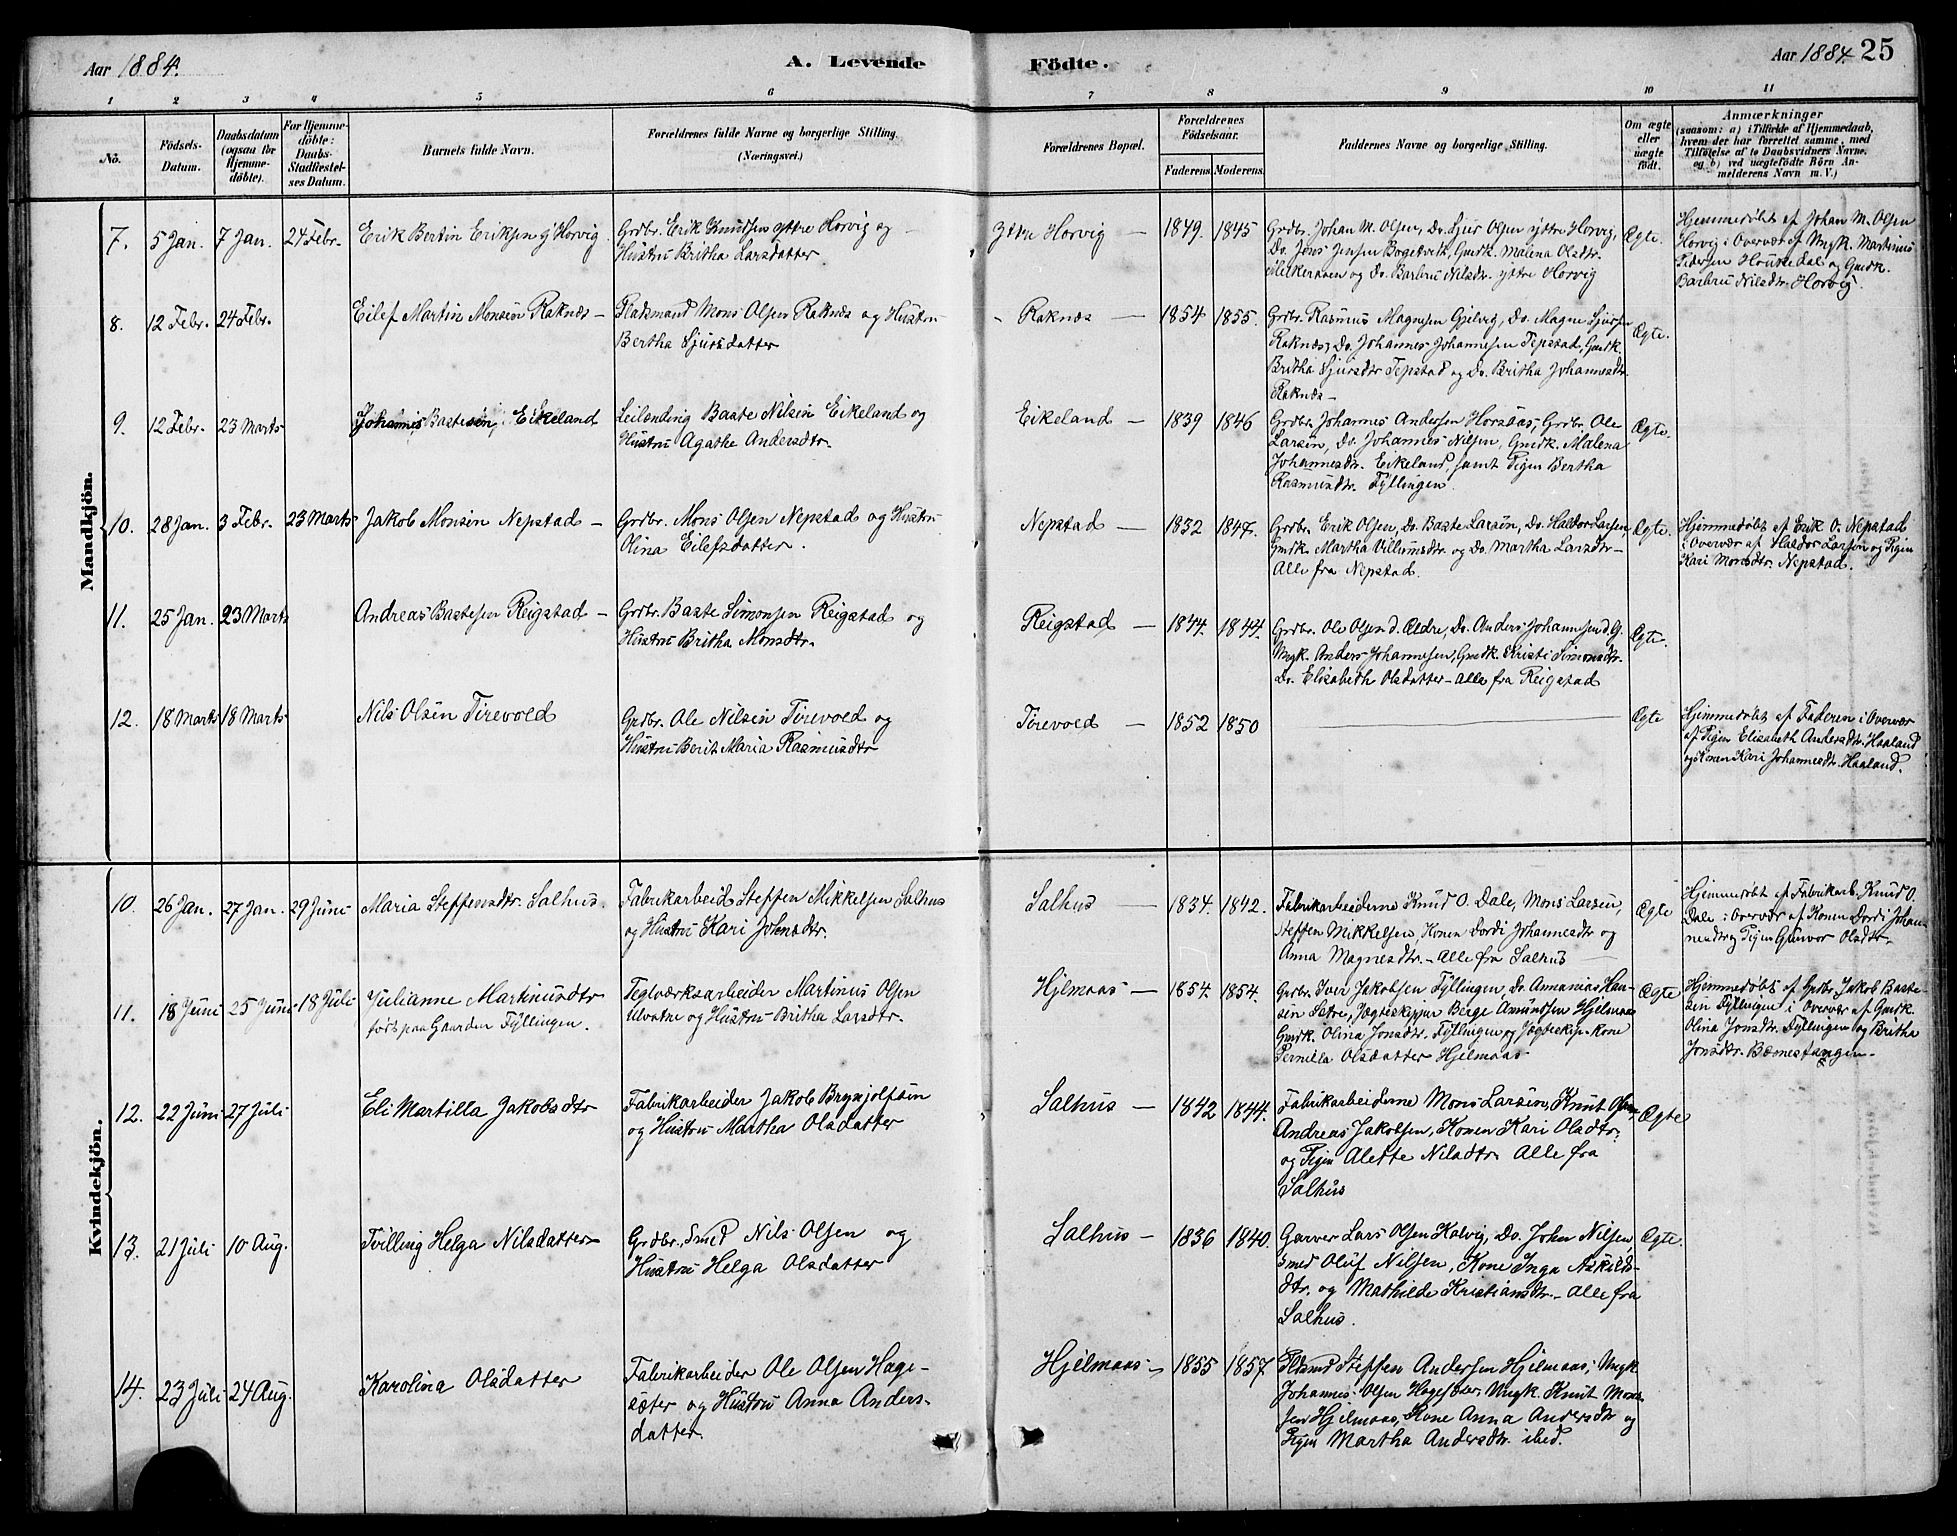 Aar 1884.
A. Levende
Födte.
Aar 1884
25
1 2 3 4 5 6 7 8 9 10 11
No.
Födsels-
Datum.
Daabsdatum
(ogsaa for
Hjemme-
döbte).
For Hjemme-
döbte:
Daabs-
Stadfæstel-
ses Datum.
Barnets fulde Navn.
Forældrenes fulde Navne og borgerlige Stilling.
(Næringsvei.)
Forældrenes Bopæl.
Forældrenes
Födselsaar.
Faderens Moderens.
Faddernes Navne og borgerlige Stilling.
Om ægte
eller
uægte
födt.
Anmærkninger
(saasom: a) i Tilfælde af Hjemmedaab,
hvem der har forrettet samme, med
Tilföielse af to Daabsvidners Navne,
og b) ved uægtefödte Börn An-
melderens Navn m. V.)
Mandkjön.
7. 5 Jan. 7 Jan. 24 Febr.
Erik Bertin Eriksen Horvig
Grdbr. Erik Knudsen ytre Horvig og
Hustru Britha Larsdatter
Ytre Horvig
1849. 1845
Grdbr. Johan M. Olsen, Do. Sjur Olsen ytre Horvig,
Do. Jens Jensen Bogetveth, Gmdk. Malena Olsdtr.
og Do. Barbru Nilsdtr. ytre Horvig
Ægte.
Hjemmedøbt af Johan M. Olsen
Horvig i Overvær af Ungk. Martinus
Pedersen og Gmdk.
Barbru Nilsdtr. Horvig.
8. 12 Febr. 24 Febr.
Eilef Martin Monsen Raknæs
Pladsmand Mons Olsen Raknæs og Hustru
Bertha Sjursdatter
Raknæs
1854 1855.
Grdbr. Rasmus Magnesen Gjelvig, Do. Magne Sjursen
Raknæs, Do. Johannes Johannesen Tepstad, Gmdk.
Britha Sjursdtr Tepstad og Do. Britha Johannesdtr.
Raknæs
Ægte.
9. 12 Febr. 23 Marts
Johannes Bastesen Eikeland
Leilending Baste Nilsen Eikeland og
Hustru Agathe Andersdtr.
Eikeland
1839 1846
Grdbr. Johannes Andersen Horsaas, Grdbr. Ole
Larsen, Do. Johannes Nilsen, Gmdk. Malena
Johannesdtr. Eikeland, samt Pigen Bertha
Rasmusdtr. Fyllingen.
Ægte.
10. 28 Jan. 3 Febr. 23 Marts
Jakob Monsen Nepstad
Grdbr. Mons Olsen Nepstad og Hustru
Olina Eilefsdatter.
Nepstad
1832 1847.
Grdbr. Erik Olsen, Do. Baste Larsen, Do. Haldor Larsen,
Gmdk. Martha Villumsdtr. og Do. Martha Larsdtr
Alle fra Nepstad.
Ægte.
Hjemmedøbt af Erik O. Nepstad
i Overvær af Haldor Larsen og Pigen
Kari Monsdtr. Nepstad.
11. 25 Jan. 23 Marts
Andreas Bastesen Reigstad
Grdbr. Baste Simonsen Reigstad og
Hustru Britha Monsdtr.
Reigstad
1844. 1844.
Grdbr. Ole Olsen d. Ældre, Do. Anders Johannesen d. G.
Ungk. Anders Johannesen, Gmdk. Kristi Simonsdtr.
Do. Elisabeth Olsdatter alle fra Reigstad
Ægte.
12. 18 Marts 18 Marts
Nils Olsen Tirevold
Grdbr. Ole Nilsen Tirevold og
Hustru Berit Maria Rasmusdtr
Tirevold
1852 1850
Ægte
Hjemmedøbt af Faderen i Overvær
af Pigen Elisabeth Andersdtr. Haaland
og Konen Kari Johannesdtr. Haaland.
Kvindekjön.
10. 26 Jan. 27 Jan. 29 Juni
Maria Steffensdtr. Salhus.
Fabrikarbeid. Steffen Mikkelsen Salhus
og Hustru Kari Johnsdtr.
Salhus
1834. 1842.
Fabrikarbeiderne Knud O. Dale, Mons Larsen,
Steffen Mikkelsen, Konen Dordi Johannesdtr og
Anna Magnesdtr. Alle fra Salhus
Ægte
Hjemmedøbt af Fabrikarb. Knud O.
Dale i Overvær af Konen Dordi Johan-
nesdtr og Pigen Gunvor Olsdtr.
11. 18 Juni 25 Juni 18 Juli
Julianne Martinusdtr
født paa Gaarden Fyllingen.
Teglværksarbeider Martinus Olsen
Ulvatne og Hustru Britha Larsdtr.
Hjelmaas
1854. 1854.
Grdbr. Iver Jakobsen Fyllingen Do. Annanias Han-
sen Sætre, Jægteskipper Berge Amundsen Hjelmaas
Gmdk. Olina Jonsdtr. Fyllingen og Jægteskpr. Kone
Pernilla Olsdatter Hjelmaas
Ægte
Hjemmedøbt af Grdbr. Jakob Baste-
sen Fyllingen i Overvær af Gmdk.
Olina Jonsdtr. Fyllingen og Britha
Jonsdtr.
12. 22 Juni 27 Juli
Eli Martilla Jakobsdtr
Fabrikarbeider Jakob Brynjolfsen
og Hustru Martha Olsdatter
Salhus
1842 1844.
Fabrikarbeiderne Mons Larsen, Knut Olsen,
Andreas Jakobsen, Konen Kari Olsdtr.
og Pigen Alette Nilsdtr. Alle fra
Salhus
Ægte
13. 21 Juli 10 Aug.
Tvilling Helga Nilsdatter
Grdbr., Smed Nils Olsen og
Hustru Helga Olsdatter
Salhus
1836 1840.
Garver Lars Olsen Kalvig, Do. John Nilsen,
Smed Oluf Nilsen, Kone Inga Askilds-
dtr. og Mathilde Kristiansdtr. alle fra
Salhus.
Ægte.
14. 23 Juli 24 Aug.
Karolina Olsdatter
Fabrikarbeider Ole Olsen Hage-
sæter og Hustru Anna Anders-
datter.
Hjelmaas
1855 1857.
Steffen Andersen Hjelmaas, Ungk.
Johannes Olsen Hagesæter, Ungk. Knut Mon-
sen Hjelmaas, Kone Anna Andersdtr og
Pigen Martha Andersdtr. ibid.